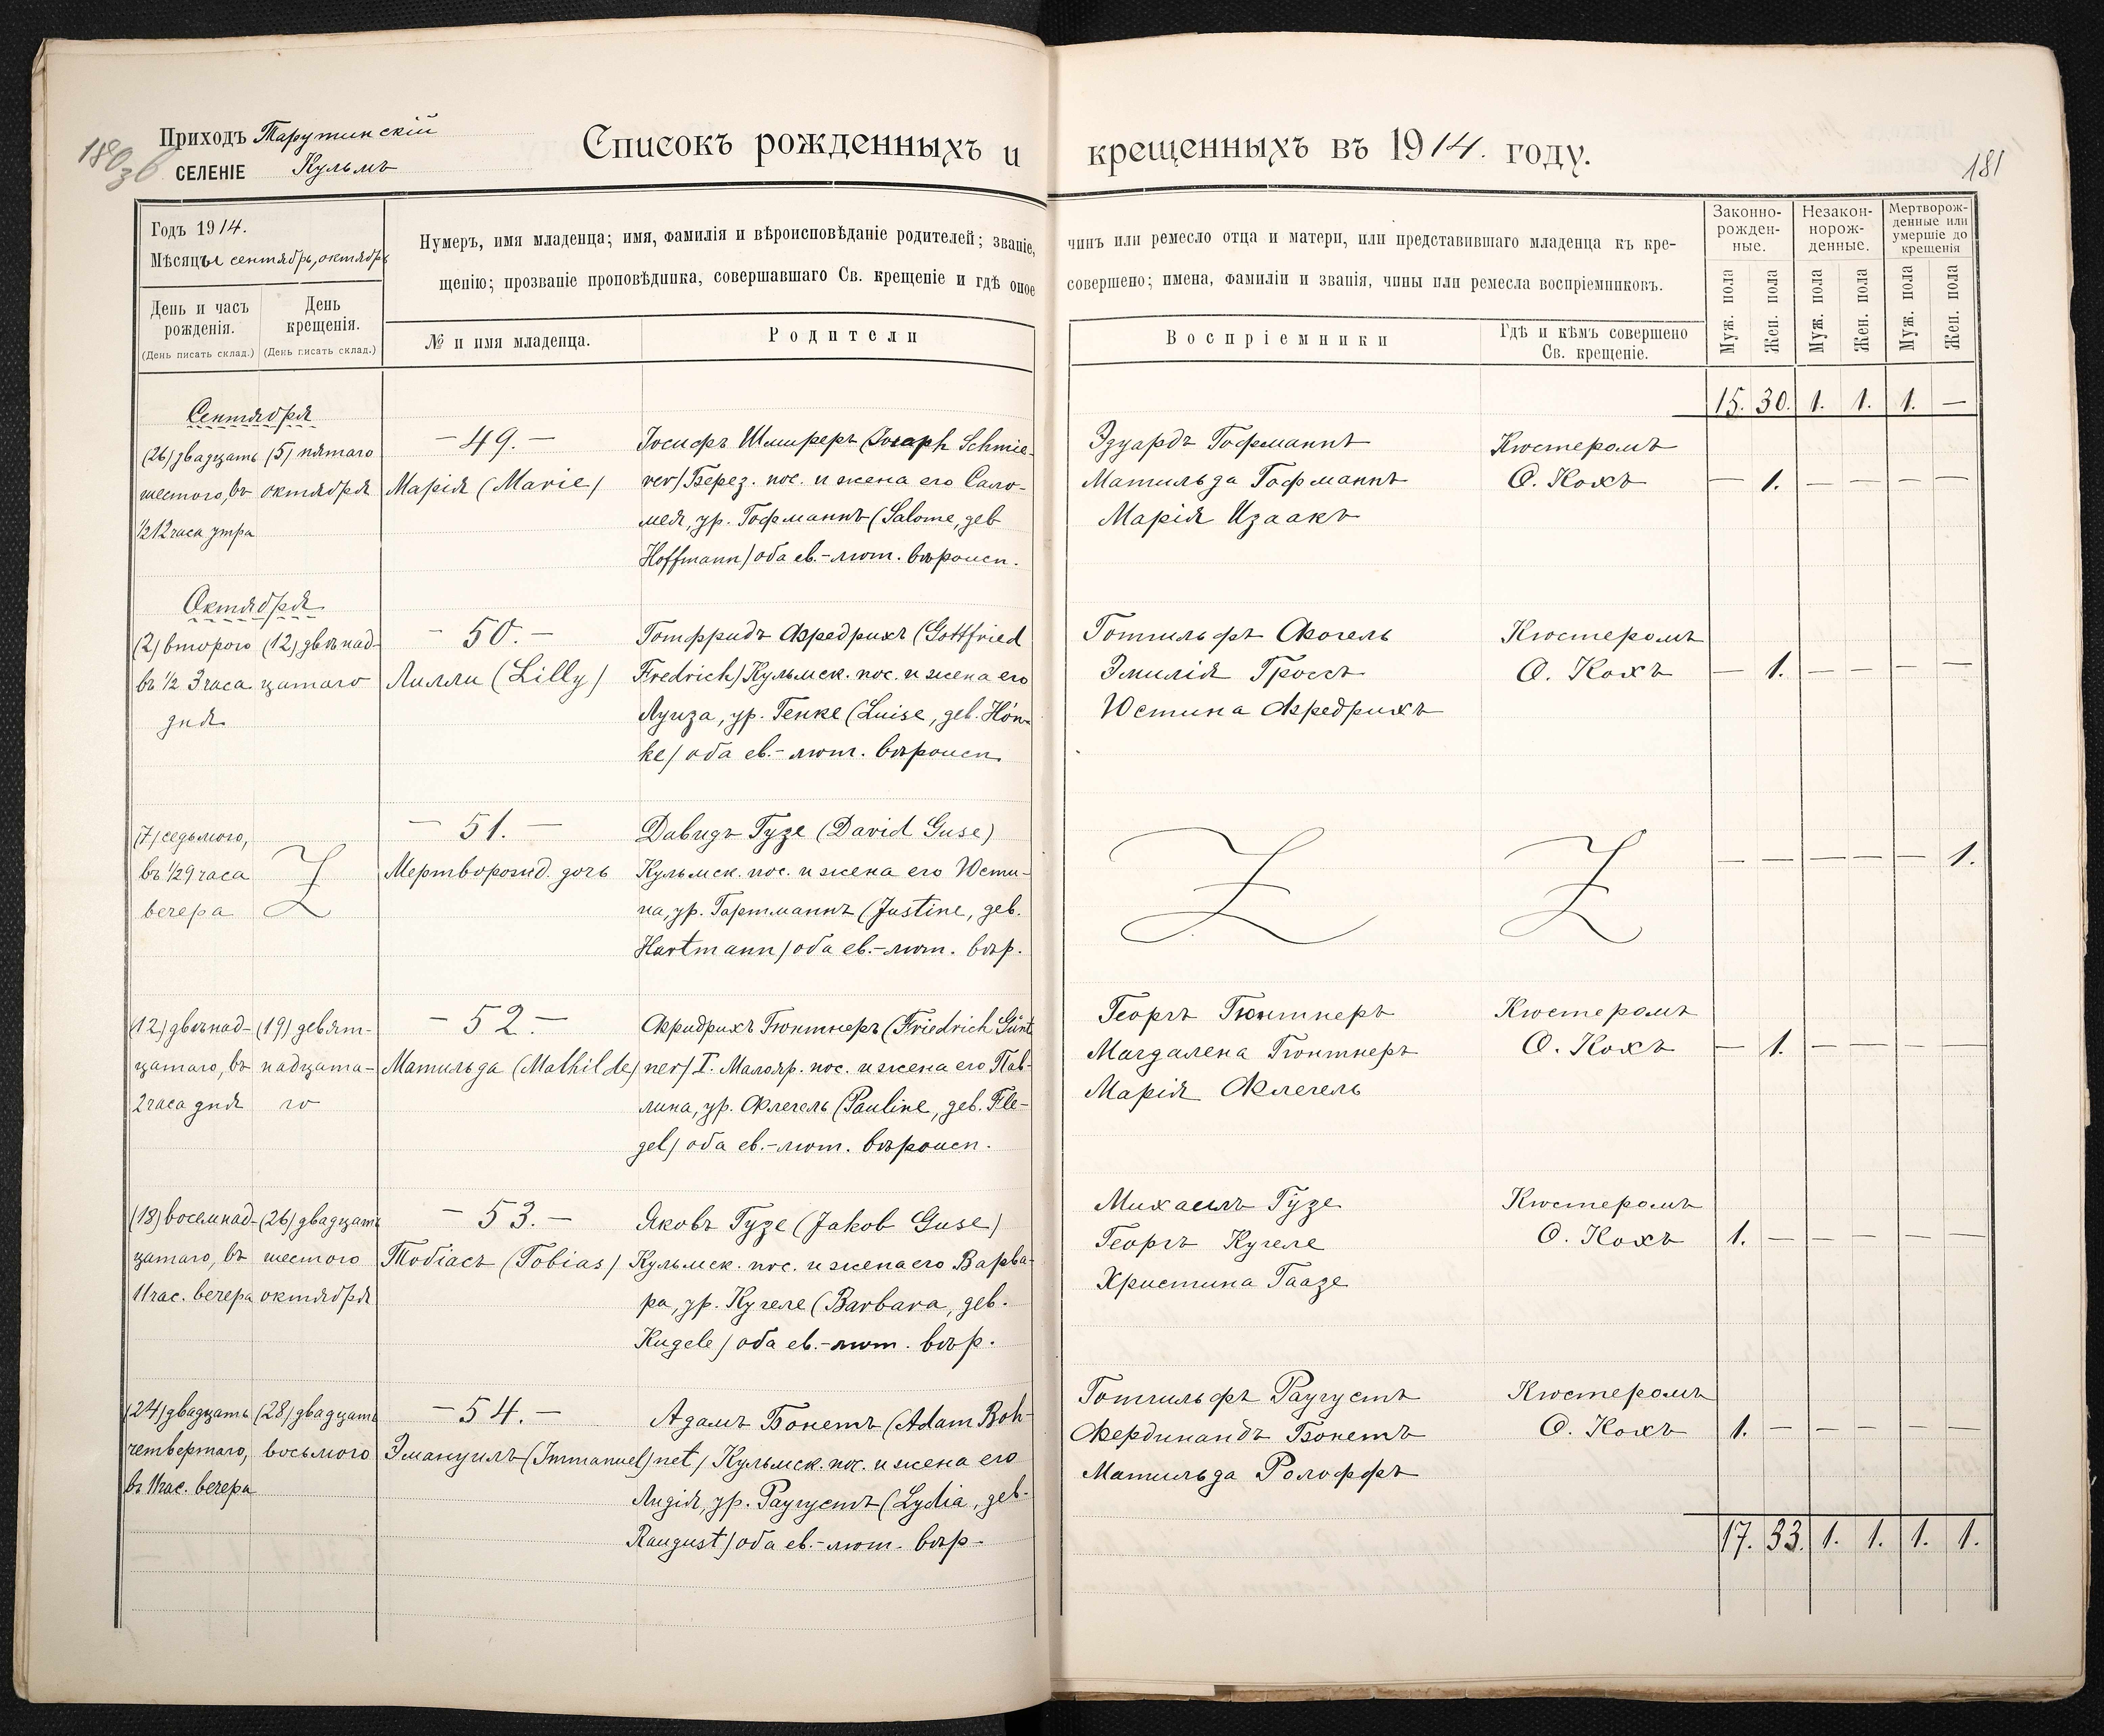 Приходъ Тарутинскій
СЕЛЕНІЕ Кульмъ
180
Списокъ рожденныхъ и крещенныхъ въ 1914. году.
181
Годъ 1914.
Мѣсяцы сентябрь, октябрь
День и часъ рожденія.
(День писать склад.)
День крещенія.
(День писать склад.)
Нумеръ, имя младенца; имя, фамилія и вѣроисповѣданіе родителей; званіе, чинъ или ремесло отца и матери, или представившаго младенца къ кре-
щенію; прозваніе проповѣдника, совершавшаго Св. крещеніе и гдѣ оное совершено; имена, фамиліи и званія, чины или ремесла воспріемниковъ.
№ и имя младенца.
Родители
Воспріемники
Гдѣ и кѣмъ совершено
Св. крещеніе.
Законно-
рожден-
ные.
Незакон-
норож-
денные.
Мертворож-
денные или
умершіе до
крещенія
Муж. пола
Жен. пола
Муж. пола
Жен. пола
Муж. пола
Жен. пола
15. 30. 1. 1. 1. —
Сентября
(26) двадцать
шестого, въ
½12 часа утра
(5) пятаго
октября
— 49. —
Марія (Marie)
Іосифъ Шмиреръ (Joseph Schmie-
rer) Берез. пос. и жена его Сало-
мея, ур. Гофманнъ (Salome, geb
Hoffmann) оба ев.-лют. вѣроисп.
Эдуардъ Гофманнъ
Матильда Гофманнъ
Марія Изаакъ
Кюстеромъ
О. Кохъ
— 1. — — — —
Октября
(2) второго
въ ½ 3 часа
дня
(12) двѣнад-
цатаго
— 50. —
Лилли (Lilly)
Готфридъ Фредрихъ (Gottfried
Fredrich) Кульмск. пос. и жена его
Луиза, ур. Генке (Luise, geb. Hön-
ke) оба ев.-лют. вѣроисп.
Готгильфъ Фогель
Эмилія Гроссъ
Юстина Фредрихъ
Кюстеромъ
О. Кохъ
— 1. — — — —
(7) седьмого,
въ ½9 часа
вечера
— 51. —
Мертворожд. дочь
Давидъ Гузе (David Guse)
Кульмск. пос. и жена его Юсти-
на, ур. Гартманнъ (Justine, geb.
Hartmann) оба ев.-лют. вѣр.
— — — — — 1.
(12) двѣнад-
цатаго, въ
2 часа дня
(19) девят-
надцата-
го
— 52. —
Матильда (Mathilde)
Фридрихъ Гюнтнеръ (Friedrich Günt
ner) I. Малояр. пос. и жена его Пав-
лина, ур. Флегель (Pauline, geb. Fle-
gel) оба ев.-лют. вѣроисп.
Георгъ Гюнтнеръ
Магдалена Гюнтнеръ
Марія Флегель
Кюстеромъ
О. Кохъ
— 1. — — — —
(18) восемнад-
цатаго, въ
11 час. вечера
(26) двадцать
шестого
октября
— 53. —
Тобіасъ (Tobias)
Яковъ Гузе (Jakob Guse)
Кульмск. пос. и жена его Варва-
ра, ур. Кугеле (Barbara, geb.
Kugele) оба ев.-лют. вѣр.
Михаилъ Гузе
Георгъ Кугеле
Христина Гаазе
Кюстеромъ
О. Кохъ
1. — — — — —
(24) двадцать
четвертаго,
въ 11 час. вечера
(28) двадцать
восьмого
— 54. —
Эмануилъ (Immanuel)
Адамъ Бонетъ (Adam Boh-
net) Кульмск. пос. и жена его
Лидія, ур. Раугустъ (Lydia, geb.
Raugust) оба ев.-лют. вѣр.
Готгильфъ Раугустъ
Фердинандъ Бонетъ
Матильда Ролоффъ
Кюстеромъ
О. Кохъ
1. — — — — —
17. 33. 1. 1. 1. 1.